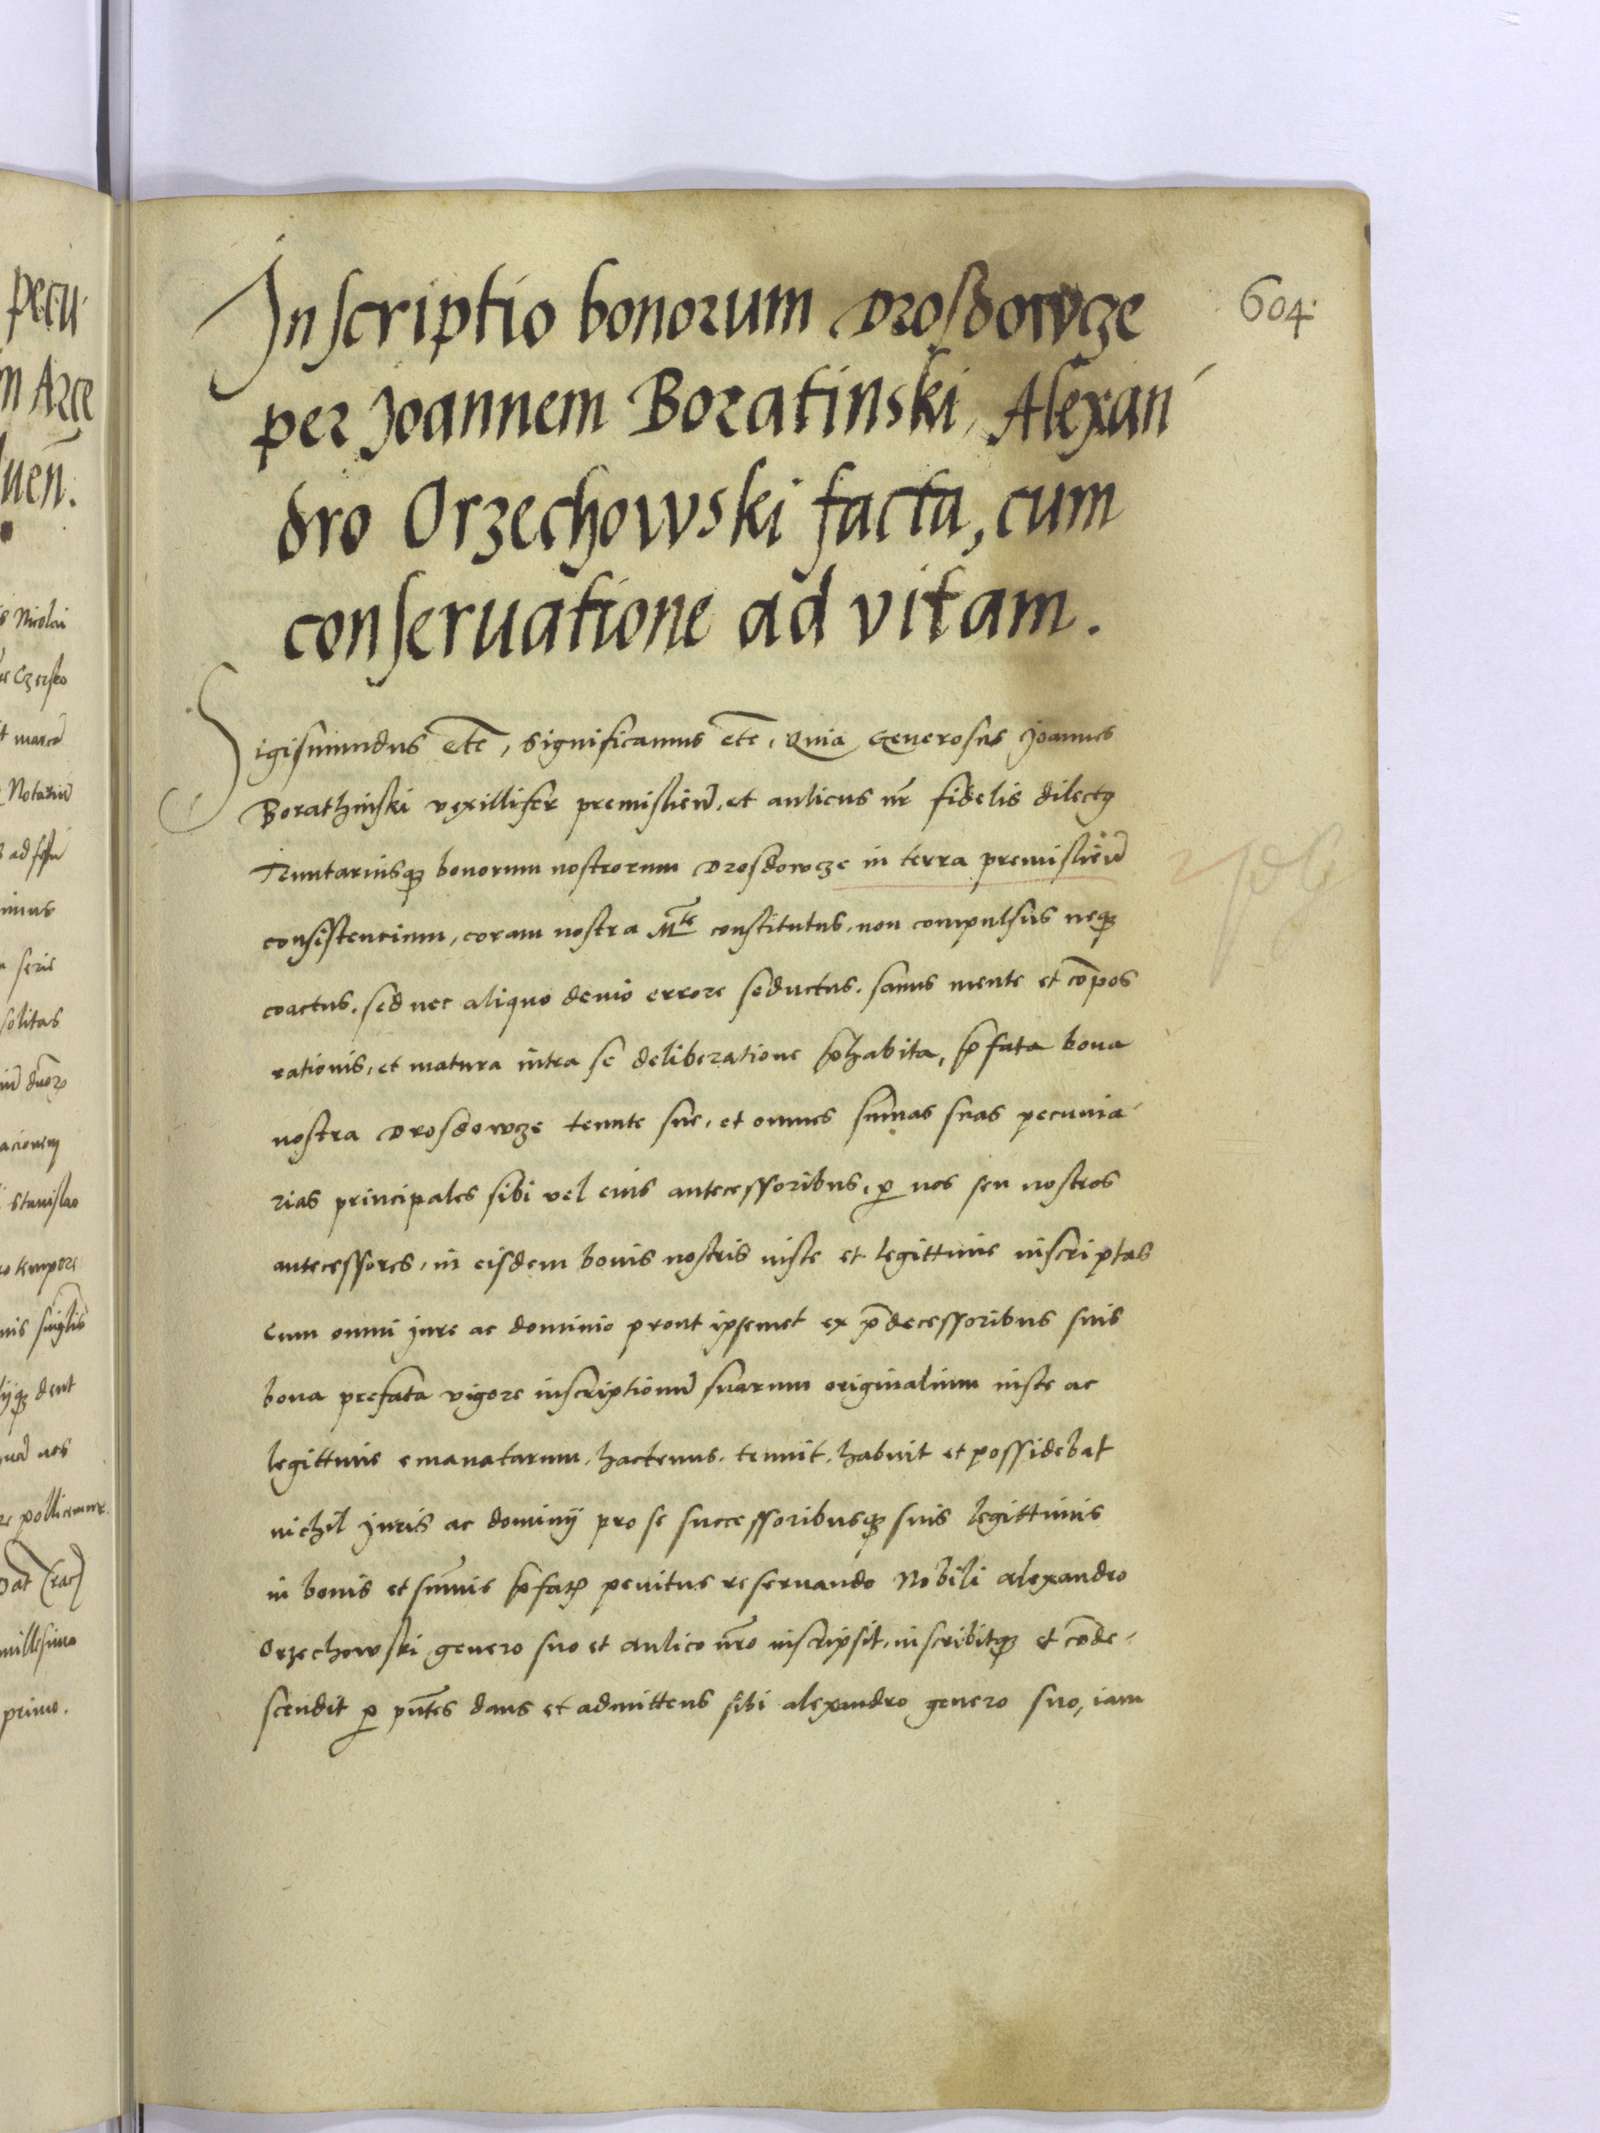 604
Inscriptio bonorum Drosdowcze
per Joannem Boratinski, Alexan
dro Orzechowski facta, cum
conseruatione ad vitam.
Sigismundus etc̄, Significamus etc̄, Quia Generosus Joannes
Borathinski vexillifer premislien̄, et aulicus nr̄ fidelis dilectꝰ
Tenutariusqꝫ bonorum nostrorum Drosdowcze in terra premislien̄
consistencium, coram nostra Mte constitutus, non compulsus neqꝫ
coactus, sed nec aliquo deuio errore seductus, sanus mente et cōpos
rationis, et matura intra se deliberatione p̄habita, p̄fata bona
nostra Drosdowcze tenute sue, et omnes sum̄as suas pecunia
rias principales sibi vel eius antecessoribus, ꝑ nos seu nostros
antecessores, in eisdem bonis nostris iuste et legittime inscriptas
cum omni jure ac dominio prout ipsemet ex p̄decessoribus suis
bona prefata vigore inscriptionū suarum originalium iuste ac
legittime emanatarum, hactenus, tenuit, habuit et possidebat
nichil juris ac dominij pro se successoribusqꝫ suis legittimis
in bonis et sum̄is p̄fatꝭ penitus reseruando Nobili Alexandro
Orzechowski genero suo et aulico nr̄o inscripsit, inscribitqꝫ et cōde-
scendit ꝑ pn̄tes dans et admittens sibi Alexandro genero suo, iam